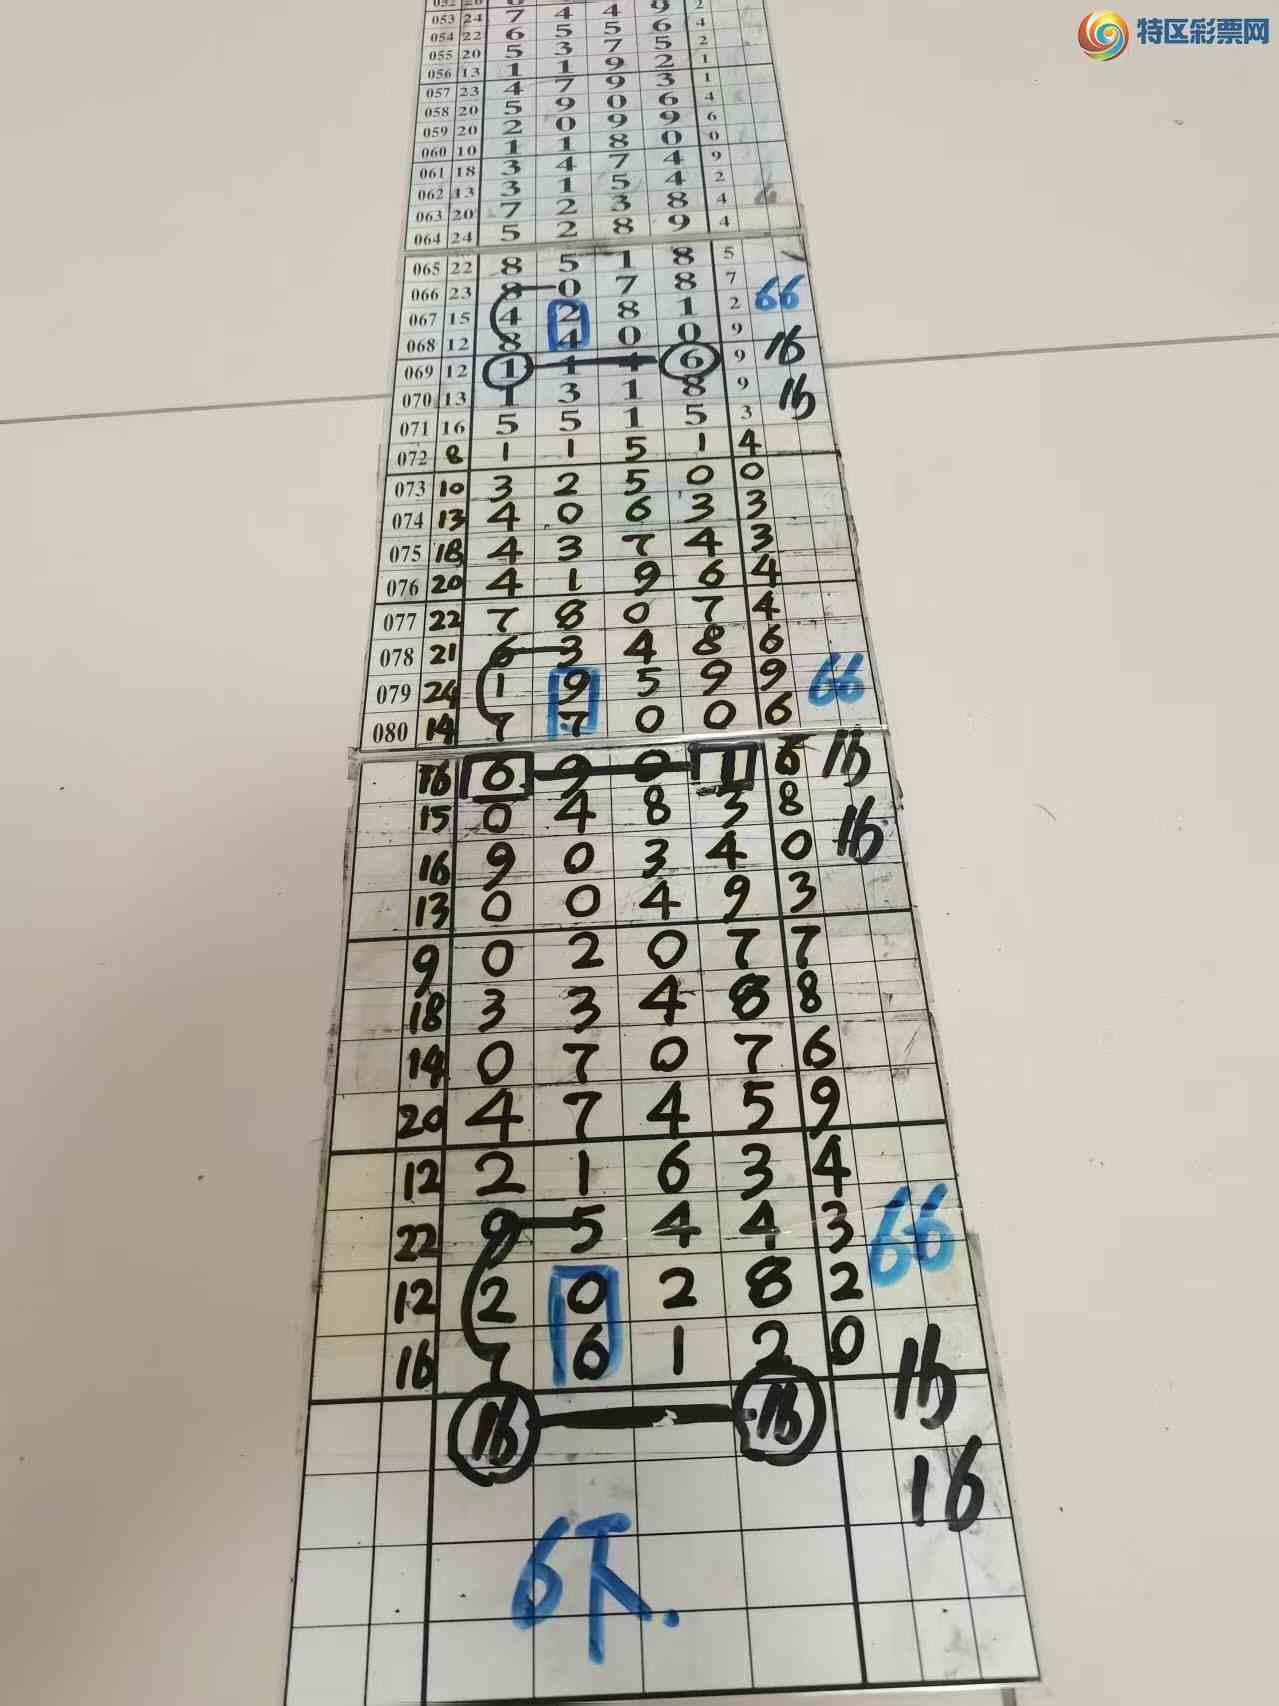 特区彩票网
053 24 7 4 4 9 2
054 22 6 5 5 6 4
055 20 5 3 7 5 2
056 13 1 1 9 2 1
057 23 4 7 9 3 1
058 20 5 9 0 6 4
059 20 2 0 9 9 6
060 10 1 1 8 0 0
061 18 3 4 7 4 9
062 13 3 1 5 4 2
063 20 7 2 3 8 4
064 24 5 2 8 9 4
065 22 8 5 1 8 5
066 23 8 0 7 8 7
067 15 4 2 8 1 2 66
068 12 8 4 0 0 9
069 12 1 1 4 6 9 16
070 13 1 3 1 8 9 16
071 16 5 5 1 5 3
072 8 1 1 5 1 4
073 10 3 2 5 0 0
074 13 4 0 6 3 3
075 18 4 3 7 4 3
076 20 4 1 9 6 4
077 22 7 8 0 7 4
078 21 6 3 4 8 6
079 24 1 9 5 9 9 66
080 14 7 7 0 0 6
16 6 9 0 1 6 16
15 0 4 8 3 8
16 9 0 3 4 0 16
13 0 0 4 9 3
9 0 2 0 7 7
18 3 3 4 8 8
14 0 7 0 7 6
20 4 7 4 5 9
12 2 1 6 3 4
22 9 5 4 4 3 66
12 2 0 2 8 2
16 7 6 1 2 0
16 16 16
16
6下.